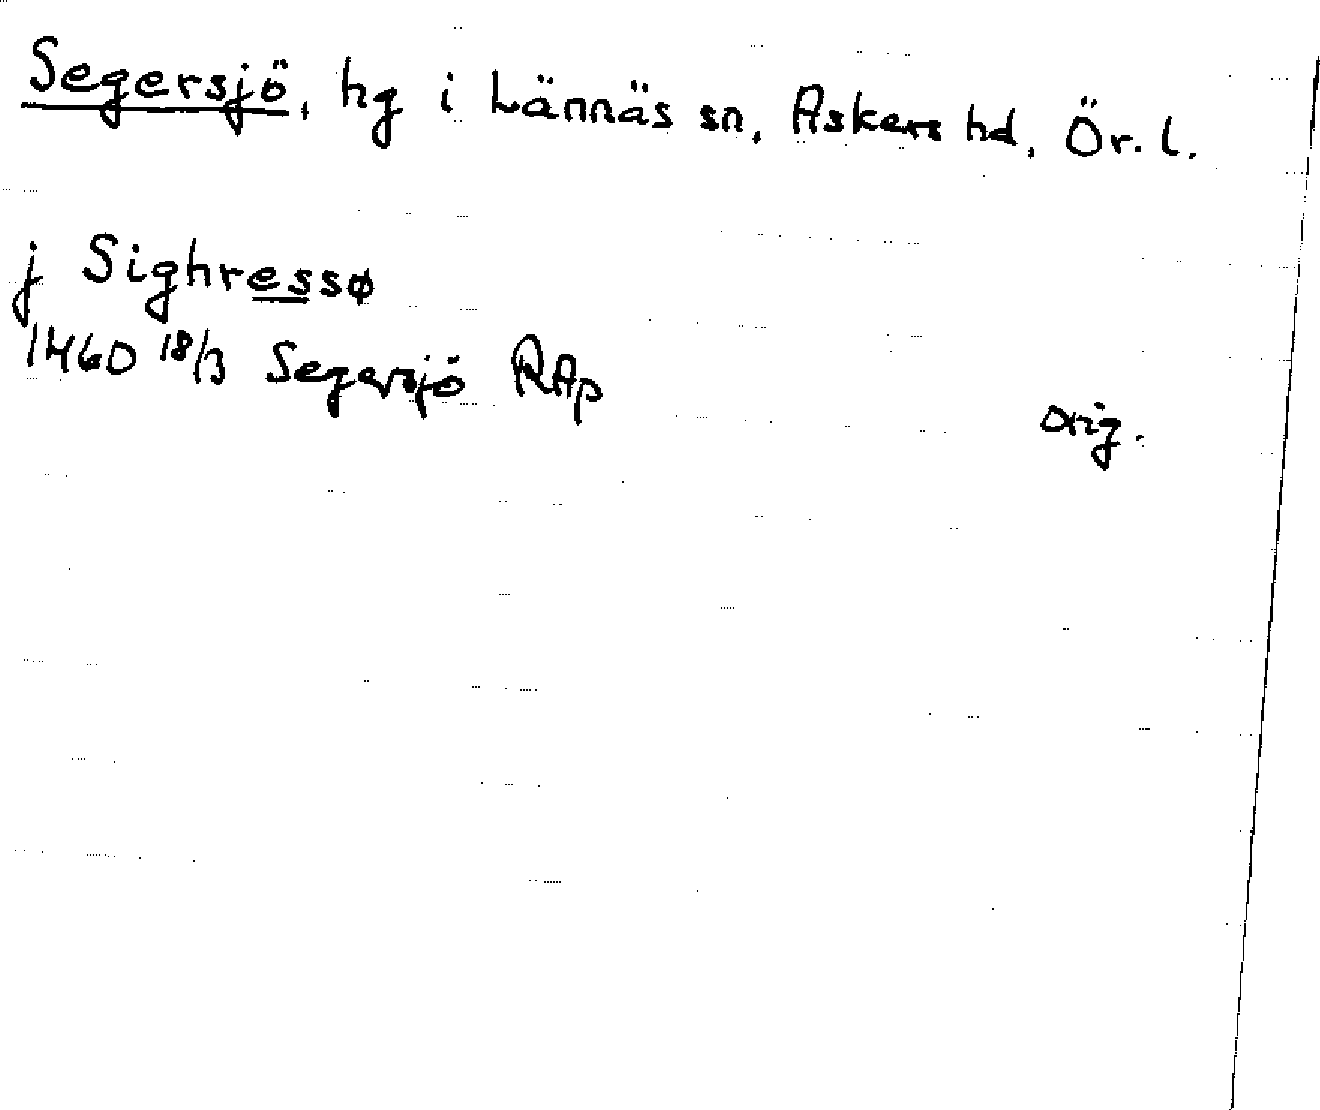 Segersjö, hg i Lännäs sn, Askers hd, Ör. l.
j Sighressø
1460 18/3 Segersjö RAp
orig.